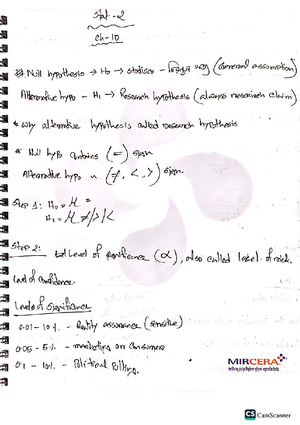 Stat-2
Ch-10
Null hypothesis → H₀ → (General assumption)
Alternative hypo - H₁ → Research hypothesis (always research claim)
* why alternative hypothesis called research hypothesis
* Null hypo contains (=) sign
Alternative hypo " (≠, <, >) sign.
Step 1: H₀ = μ =
H₁ = μ ≠/>/<
Step 2: Level of significance (α), also called level of risk.
Level of confidence.
Levels of significance
0.01 - 10%. - Quality assurance (sensitive)
0.05 - 5%. - marketing or Consumers
0.1 - 10%. - Political Polling.
MIRCERA
CS CamScanner